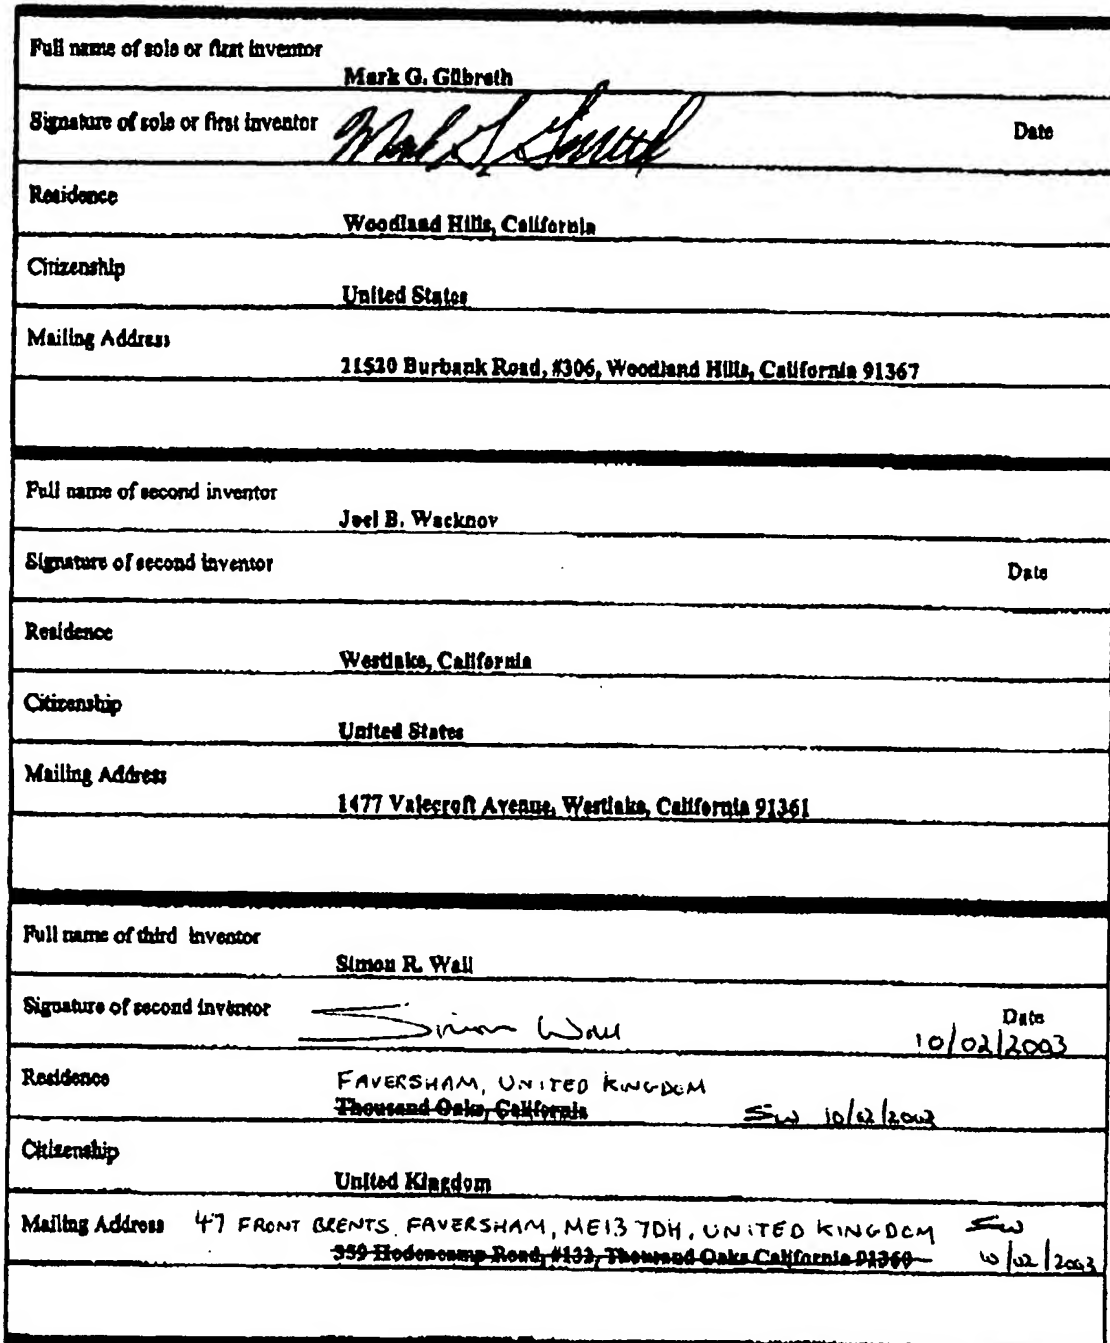 Full name of sole or first inventor
Mark G. Gilbreth
Signature of sole or first inventor Date
Residence
Woodland Hills, California
Citizenship
United States
Mailing Address
21520 Burbank Road, #306, Woodland Hills, California 91367
Full name of second inventor
Joel B. Wacknov
Signature of second inventor Date
Residence
Westlake, California
Citizenship
United States
Mailing Address
1477 Valecroft Avenue, Westlake, California 91361
Full name of third inventor
Simon R. Wall
Signature of second inventor Simon Wall Date
10/02/2003
Residence FAVERSHAM, UNITED KINGDOM
Thousand Oaks, California SW 10/02/2003
Citizenship
United Kingdom
Mailing Address 47 FRONT BRENTS, FAVERSHAM, ME13 7DH, UNITED KINGDOM SW
359 Hodencamp Road, #133, Thousand Oaks California 91360 10/02/2003